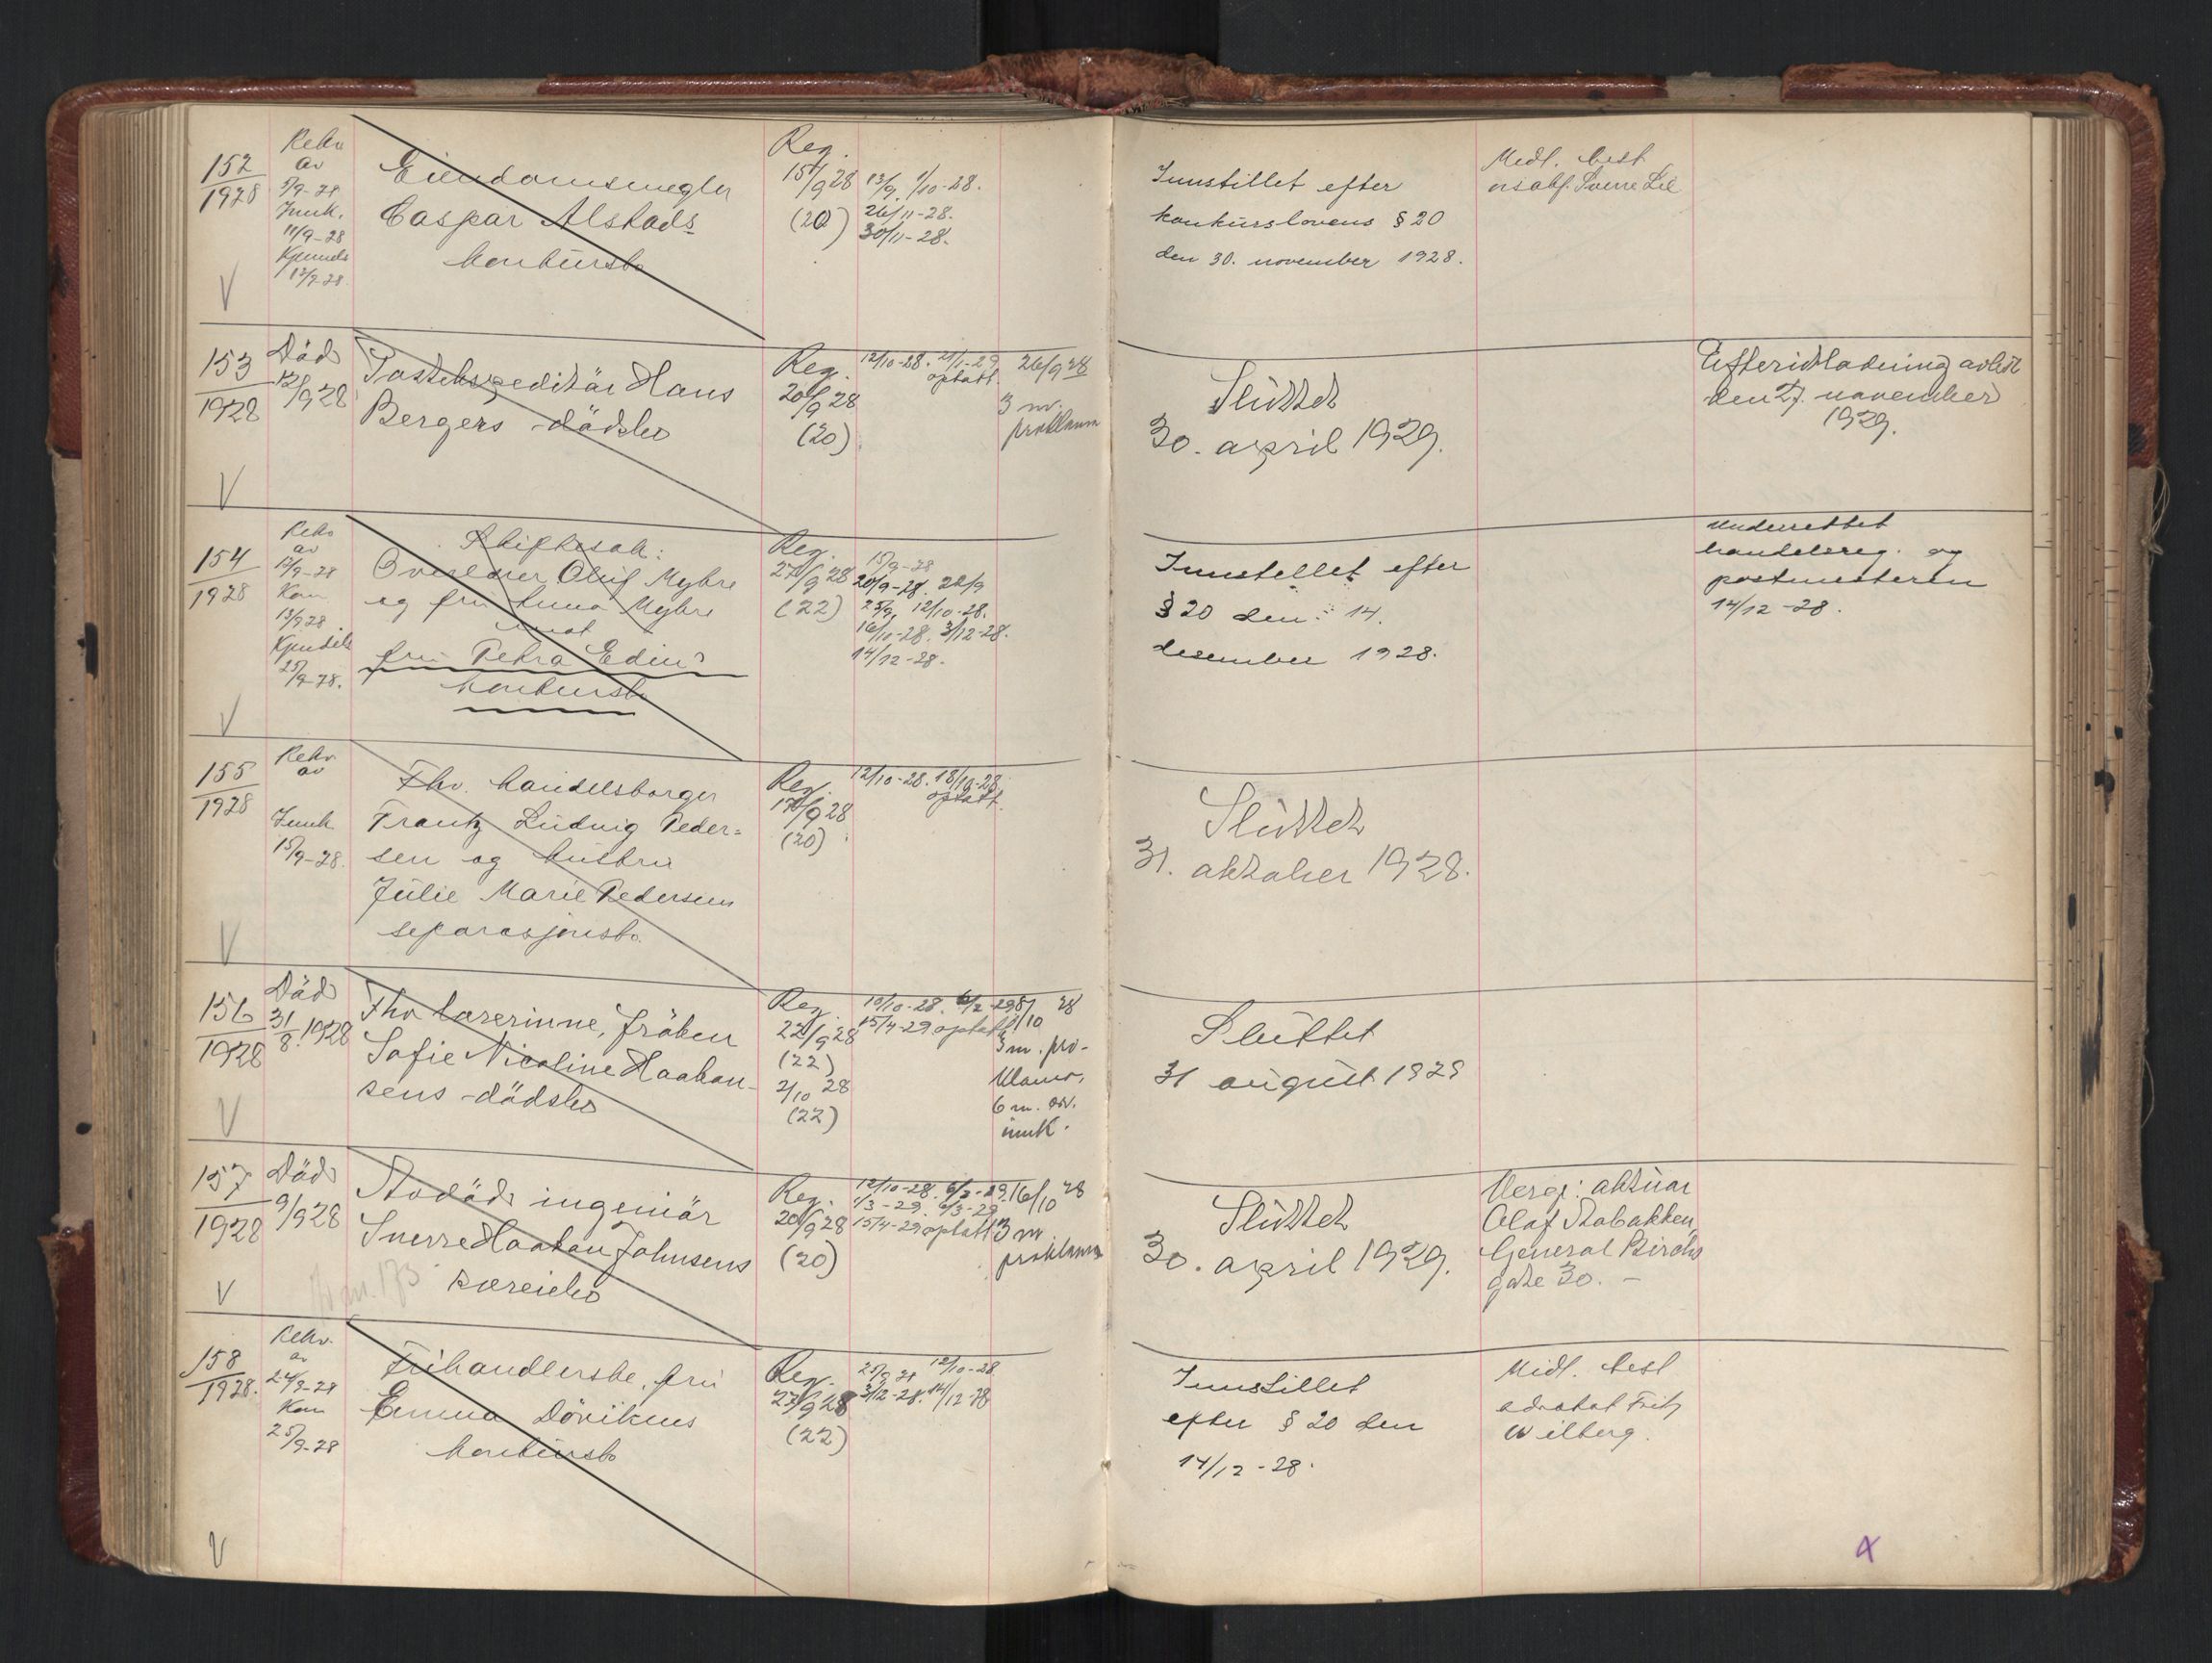 152
1928
Rekv
av
5/9-28
Innk.
11/9-28
Kjennels
12/9-28
Eiendomsmegler
Caspar Alstads
konkursbo
Reg.
15/9 28
(20)
13/9. 1/10-28.
26/11-28.
30/11-28.
V
Innstillet efter
konkurslovens § 20
den 30. november 1928.
Midl. best
Sverre Lie
153
1928
Död
12/9 28
Postekspeditör Hans
Bergers dödsbo
Reg.
20/9 28
(20)
12/10-28. 21/1-29
optatt.
26/9 28
3 m.
proklama
V
Sluttet
30. april 1929.
Efterutlodning avholdt
den 27. november
1929.
154
1928
Rekv
av
12/9-28
Kom
13/9 28
Kjendels
25/9-28.
Skiftesak:
Overlærer Oluf Myhre
og fru Anna Myhre
mot
fru Petra Edin's
konkursbo
Reg.
27/9 28
(22)
15/9-28
20/9-28. 22/9
25/9. 12/10-28.
16/11-28. 3/12-28.
14/12-28.
V
Innstillet efter
§ 20 den 14.
desember 1928.
Underrettet
handelsreg. og
postmesteren
14/12-28.
155
1928
Rekv.
av
Innk
15/9-28.
Fhv. handelsborger
Frantz Ludvig Peder-
sen og hustru
Julie Marie Pedersens
separasjonsbo.
Reg.
17/9 28
(20)
12/10-28. 18/10-28
optatt.
V
Sluttet
31. oktober 1928.
156
1928
Död
31/8. 1928
Fhv lærerinne, fröken
Sofie Nicoline Haakon-
sens dödsbo
Reg.
22/9 28
(22)
2/10 28
(22)
10/10-28. 6/2-29
15/4-29 optatt
8/10 28
3 m. pro-
klama,
6 m. arv.
innk.
V
Sluttet
31 august 1929
157
1928
Död
9/9 28
Avdöde ingeniör
Sverre Haakon Johnsens
særeiebo
Reg.
20/9 28
(20)
12/10-28. 6/2-29.
1/3-29. 6/3-29
15/4-29 optatt
16/10 28
3 m
proklama
V
Sluttet
30. april 1929.
Verge: aktuar
Olaf Stabakken,
General Birchs
gate 30. –
158
1928.
Rekv.
av
24/9-28
Kom
25/9-28
Frihandlerske, fru
Emma Dövikens
konkursbo
Reg.
27/9 28
(22)
25/9 28 12/10-28
3/12-28. 14/12-28
V
Innstillet
efter § 20 den
14/12-28.
Midl. best
advokat Fritz
Wilberg.